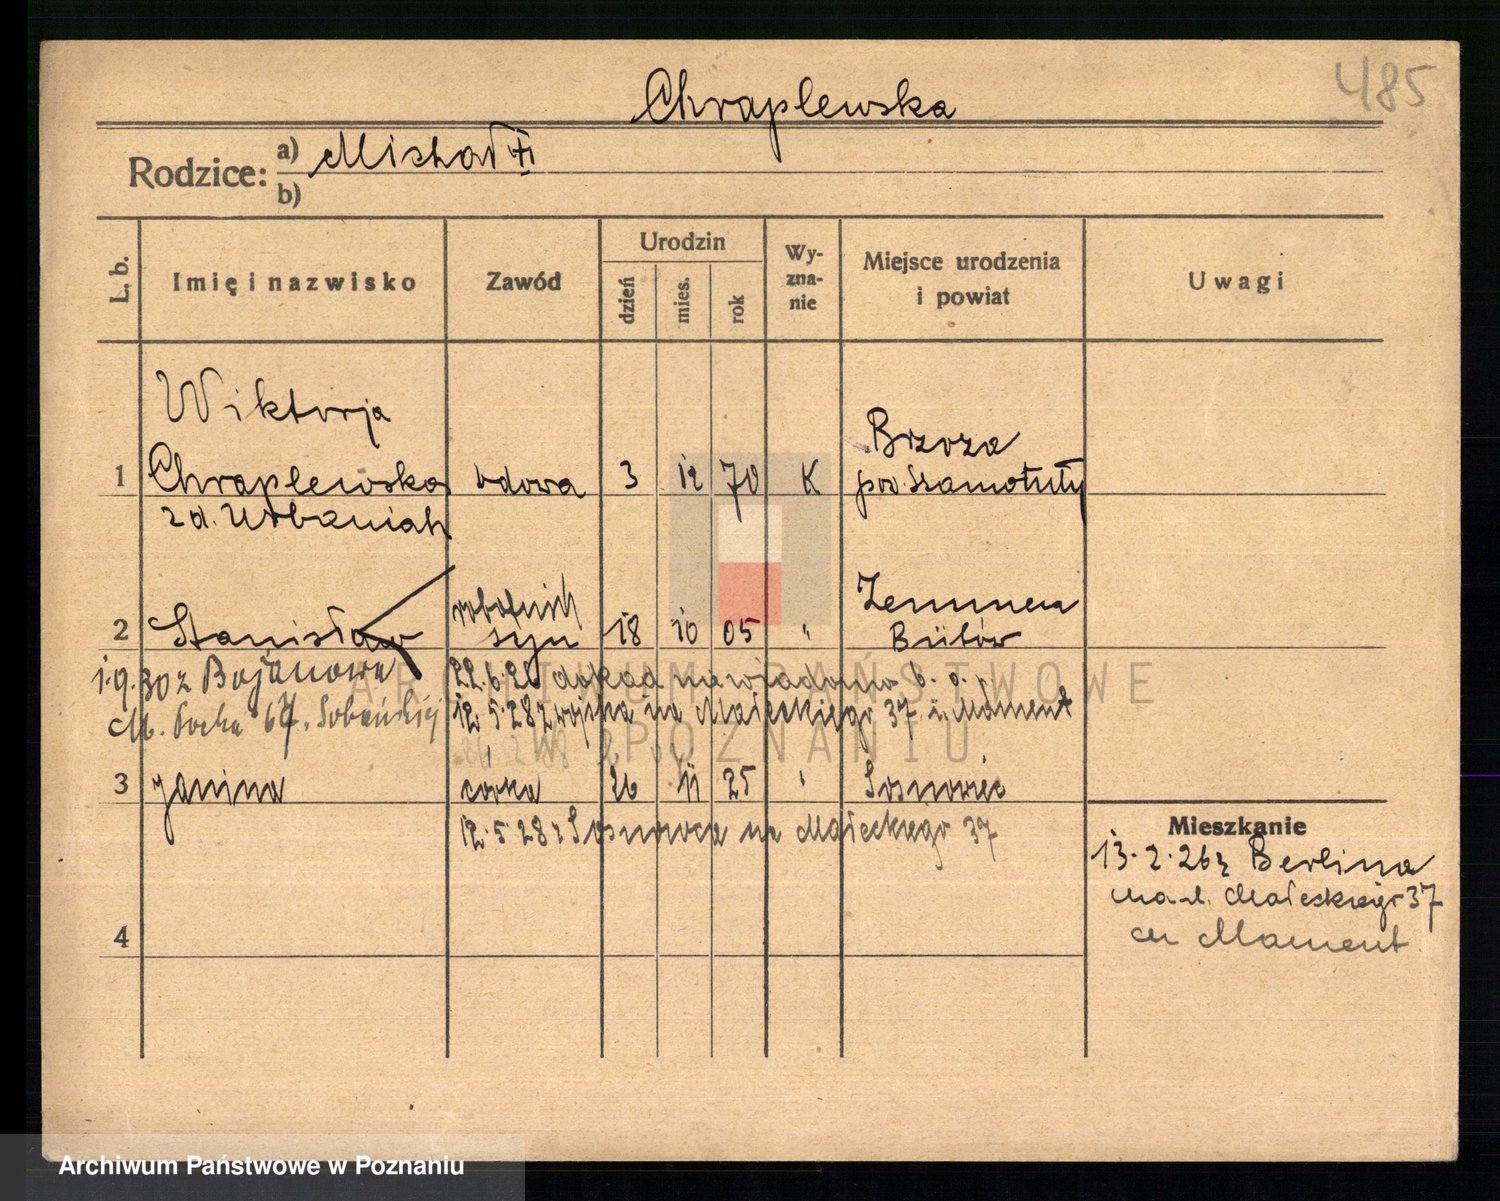 485
Chraplewska
Rodzice: a) Michał
b)
L. b.
Imię i nazwisko
Zawód
Urodzin
dzień
mies.
rok
Wy-
zna-
nie
Miejsce urodzenia
i powiat
Uwagi
Wiktorja
1 Chraplewska wdowa 3 12 70 K Brzoza
pow. Szamotuły
zd. Urbaniak
2 Stanisław robotnik
syn 18 10 05 " Zemmen
Bütow
1.9.30 z Bojanowa
M. Focha 67. Sobański
22.6.26 dokąd niewiadomo
12.5.28 z wojska na Małeckiego 37 u. Mament
3 Janina córka 26 11 25 " Sosnowiec
12.5.28 z Sosnowca na Małeckiego 37
Mieszkanie
13.2.26 z Berlina
na ul. Małeckiego 37
u Mament
4
ARCHIWUM PAŃSTWOWE
W POZNANIU
Archiwum Państwowe w Poznaniu